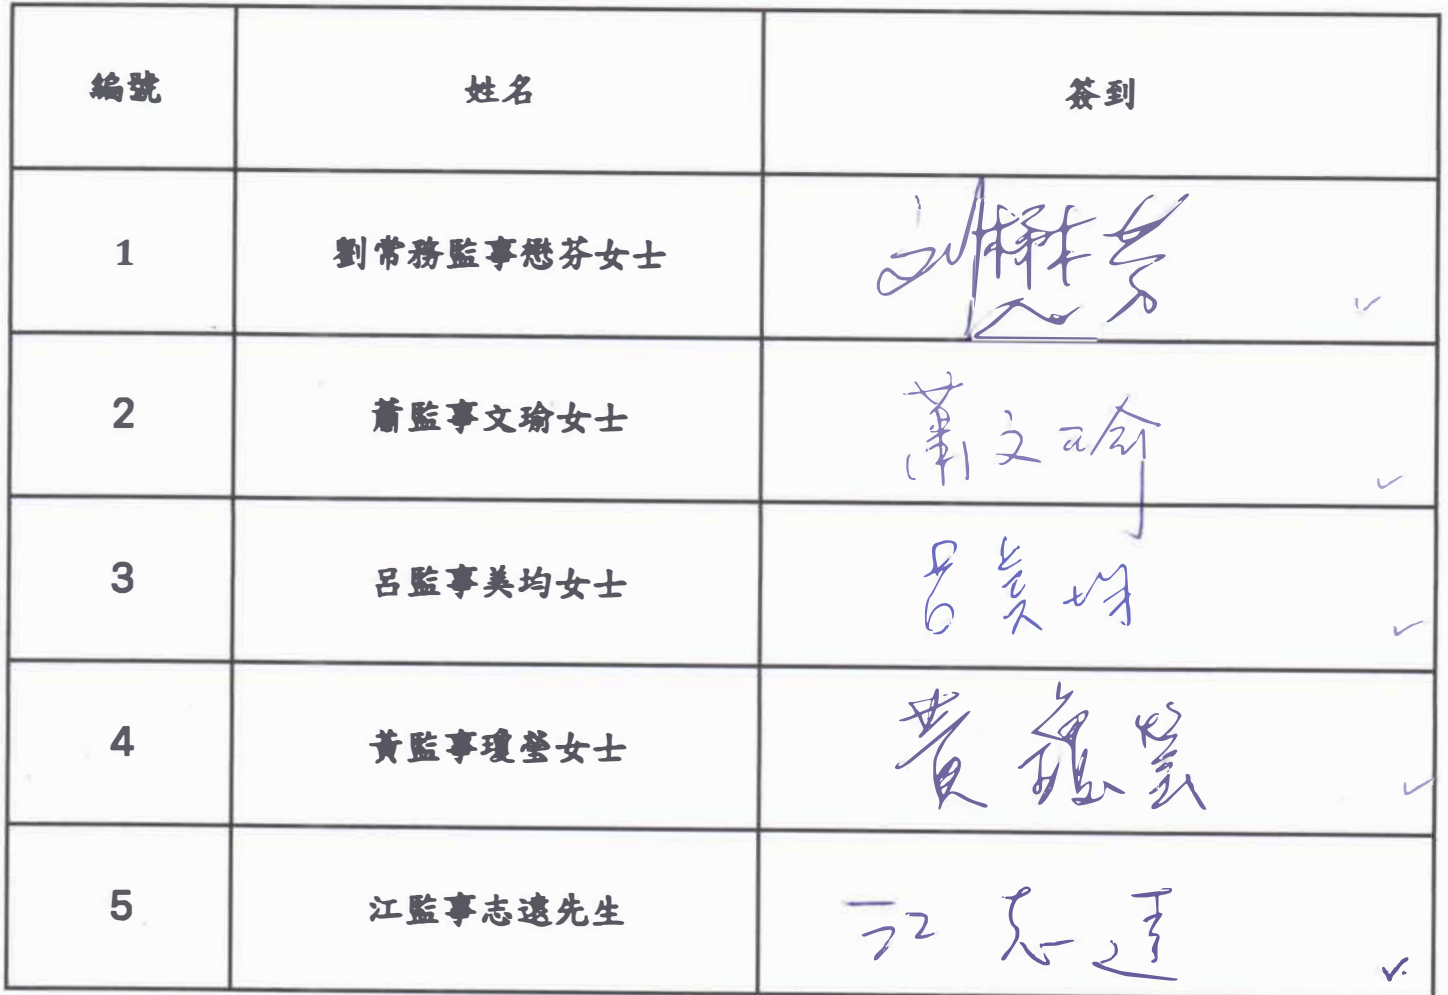 編號 姓名 簽到
1 劉常務監事懋芬女士 劉懋芬
2 蕭監事文瑜女士 蕭文瑜
3 呂監事美均女士 呂美均
4 黃監事瓊瑩女士 黃瓊瑩
5 江監事志遠先生 江志遠